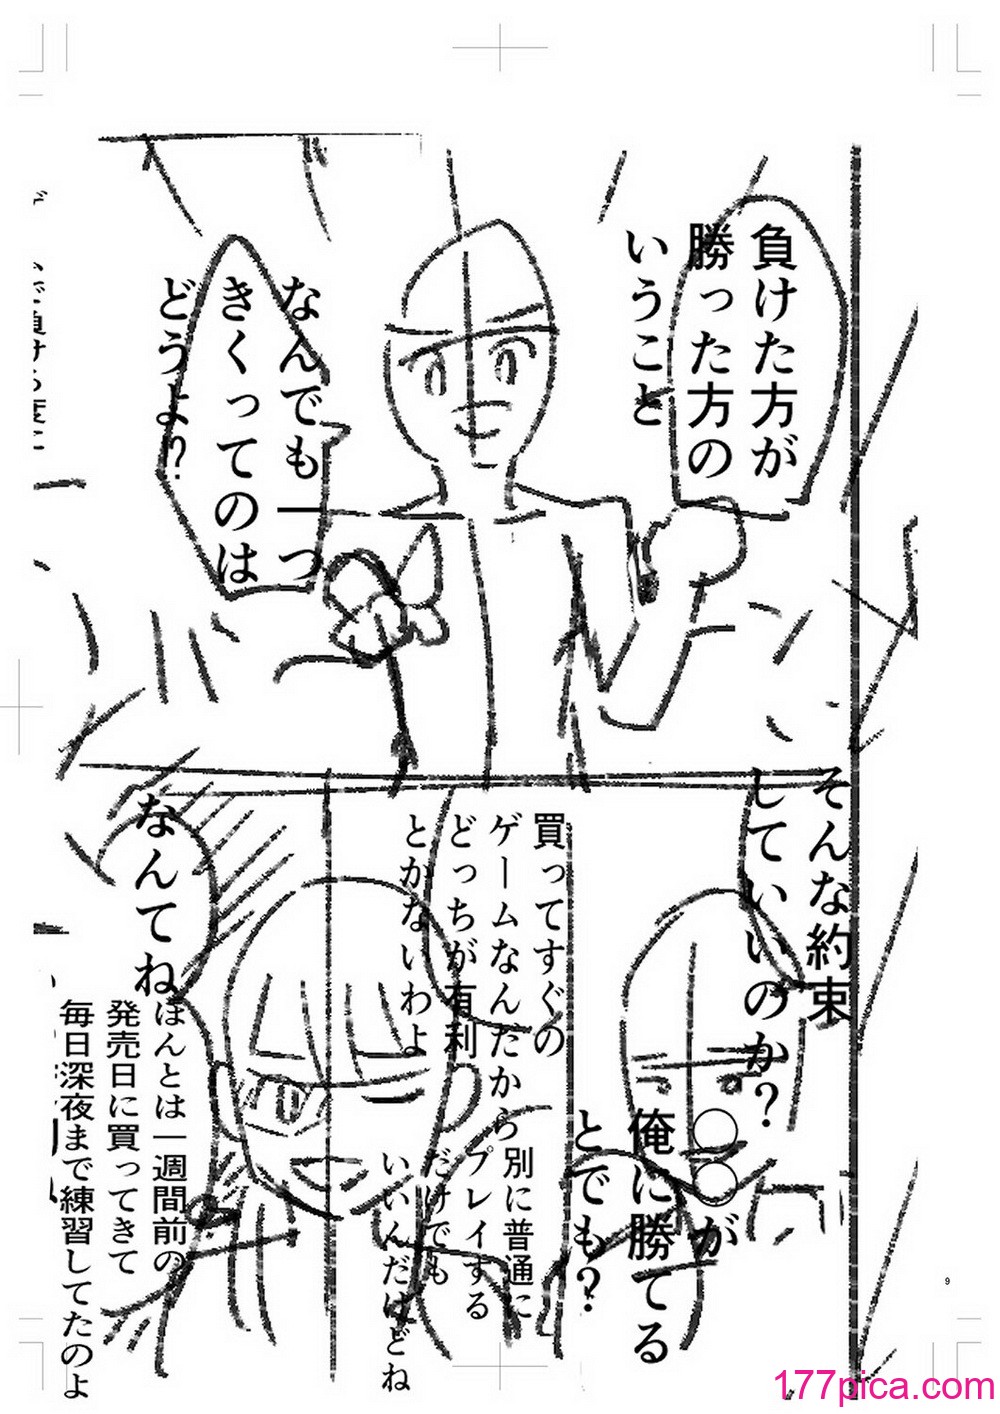 負けた方が
勝った方の
いうこと
なんでも一つ
きくってのは
どうよ!?
そんな約束
していいのか?
〇〇が
俺に勝てる
とでも?
買ってすぐの
ゲームなんだから
どっちが有利
とかないわよ
別に普通に
プレイする
だけでも
いいんだけどね
なんてね
ほんとは一週間前の
発売日に買ってきて
毎日深夜まで練習してたのよ
9
177pica.com